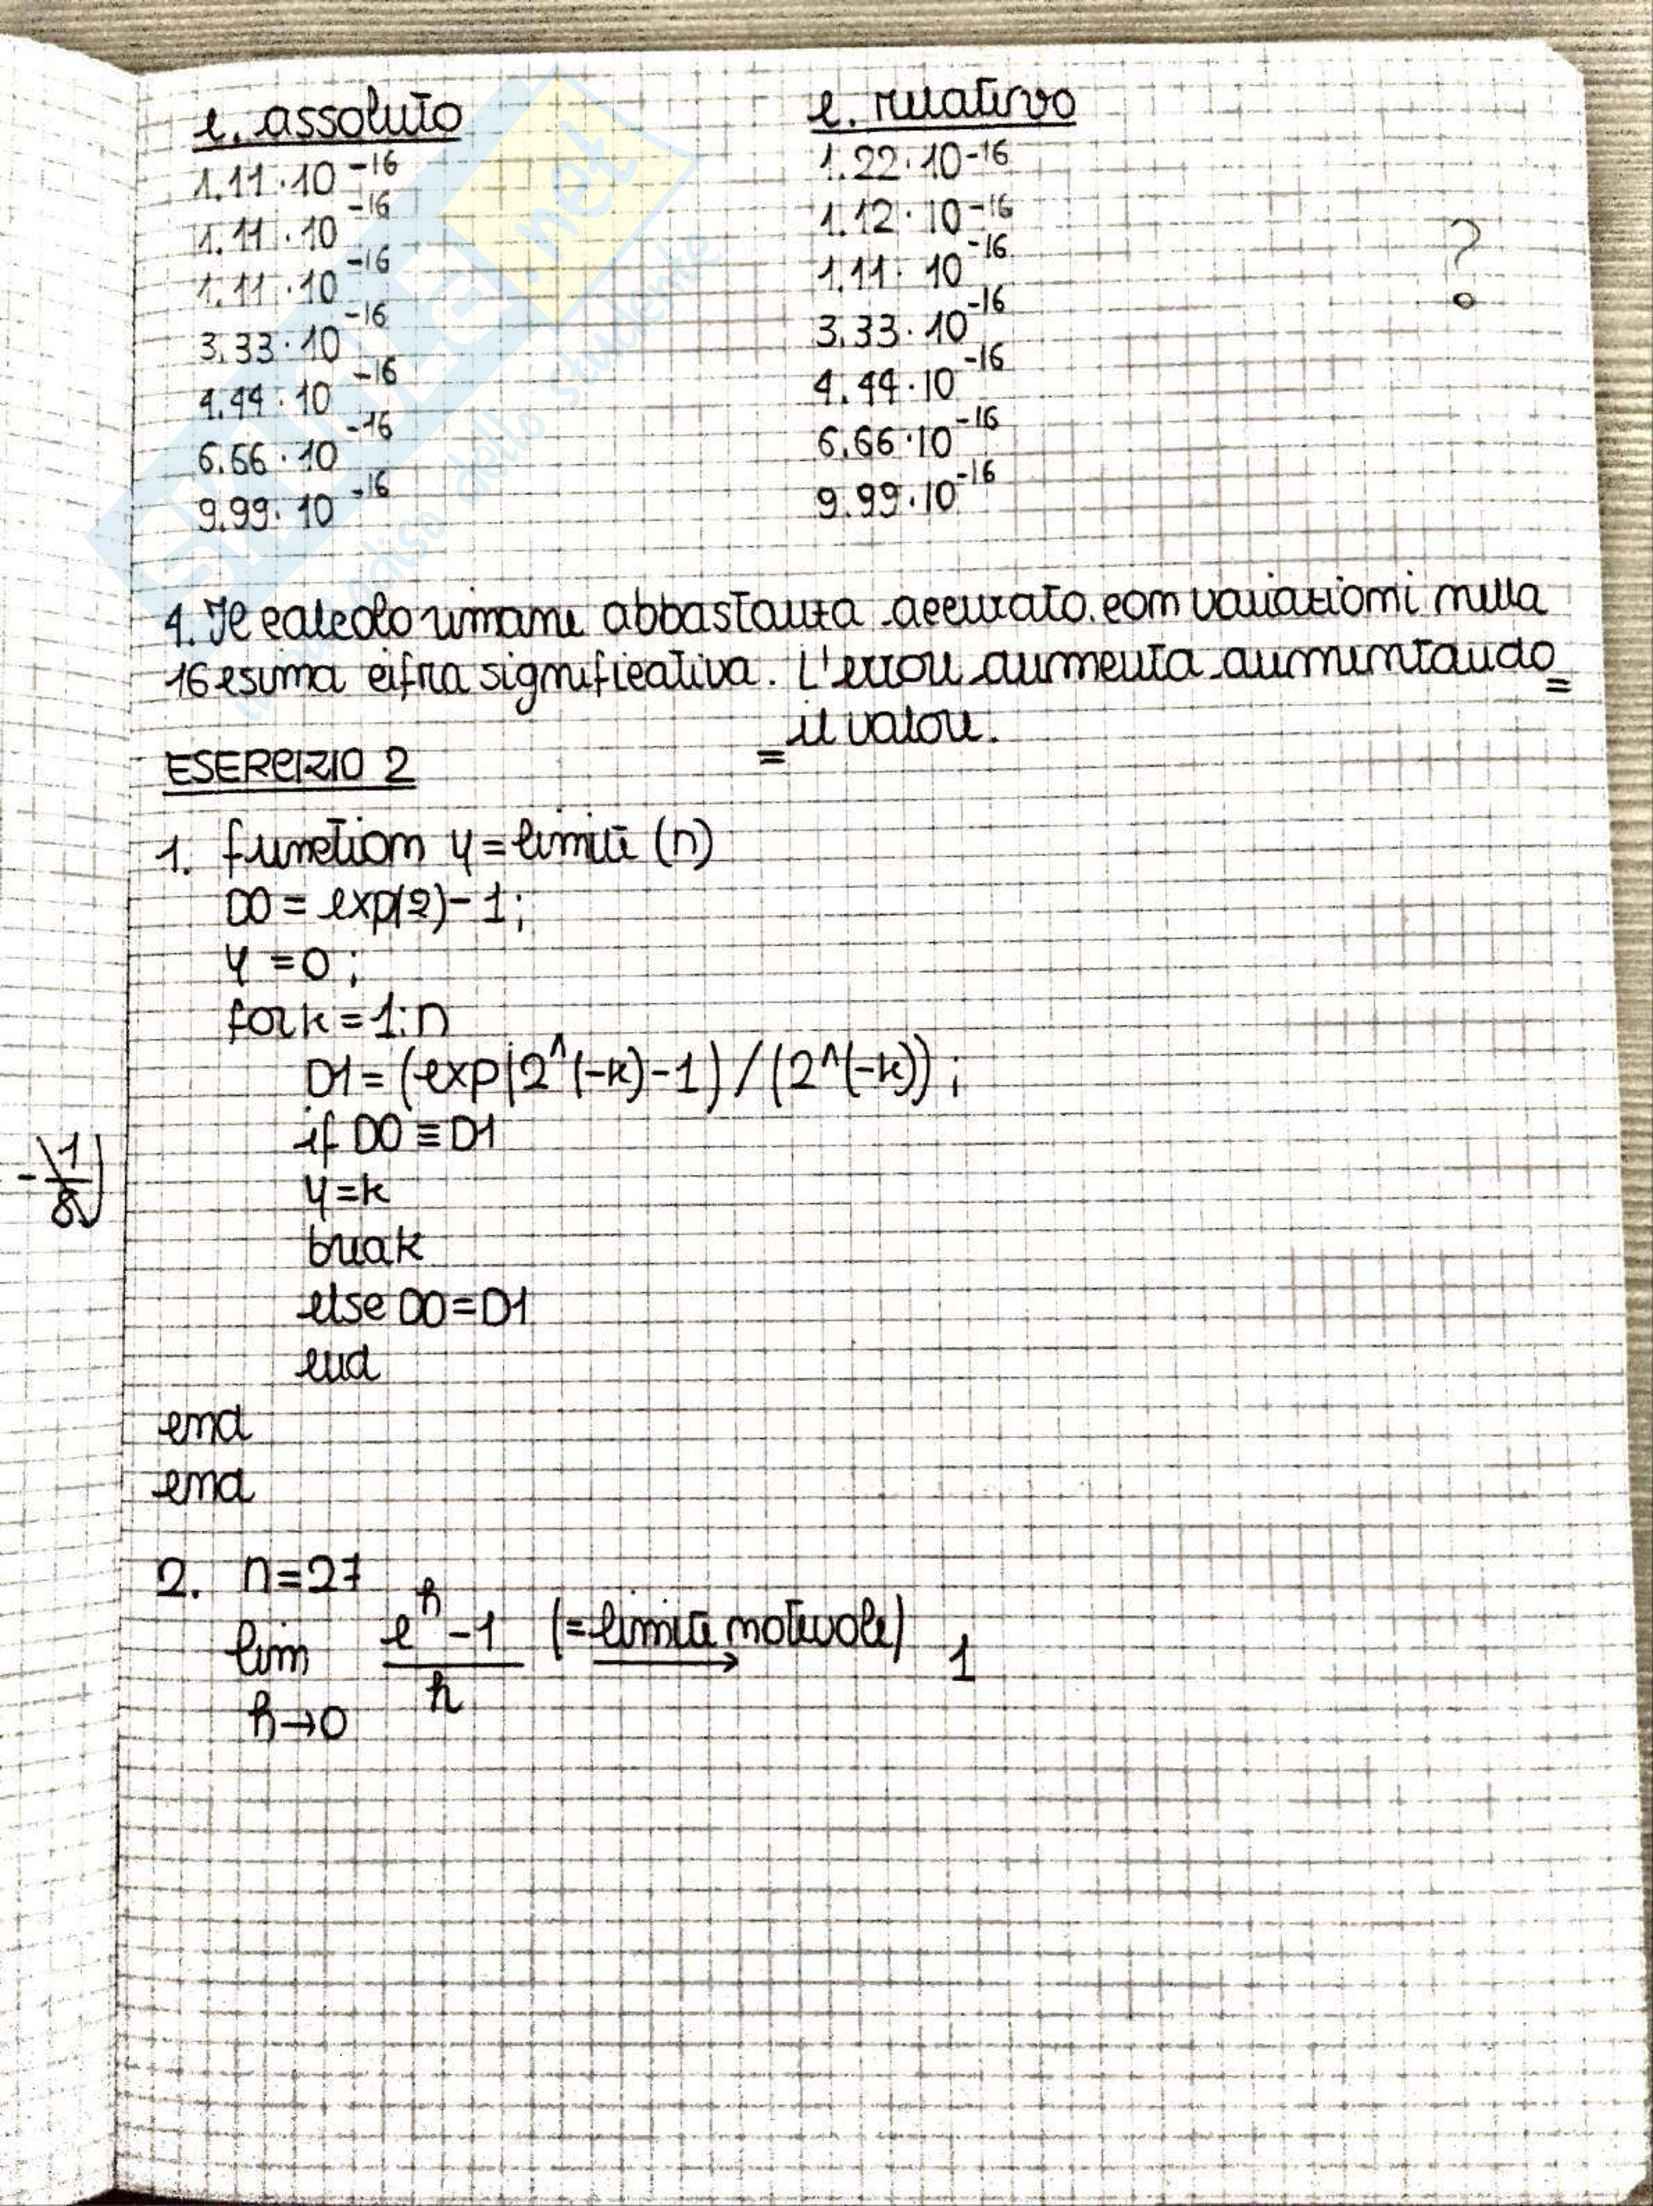 e. assoluto e. relativo
1.11·10^-16 1.22·10^-16
1.11·10^-16 1.12·10^-16
1.11·10^-16 1.11·10^-16
3.33·10^-16 3.33·10^-16
4.44·10^-16 4.44·10^-16
6.66·10^-16 6.66·10^-16
9.99·10^-16 9.99·10^-16
?
4. Il calcolo rimane abbastanza accurato con variazioni nella
16esima cifra significativa. L'errore aumenta aumentando =
= il valore.
ESERCIZIO 2
1. function y=limite (n)
D0 = exp(2)-1;
y = 0;
for k=1:n
D1=(exp(2^(-k)-1)/(2^(-k));
if D0 ≡ D1
y=k
break
else D0=D1
end
end
end
-1/8)
2. n=27
lim h→0 (e^h -1)/h (=limite notevole) → 1
.net
dello studente